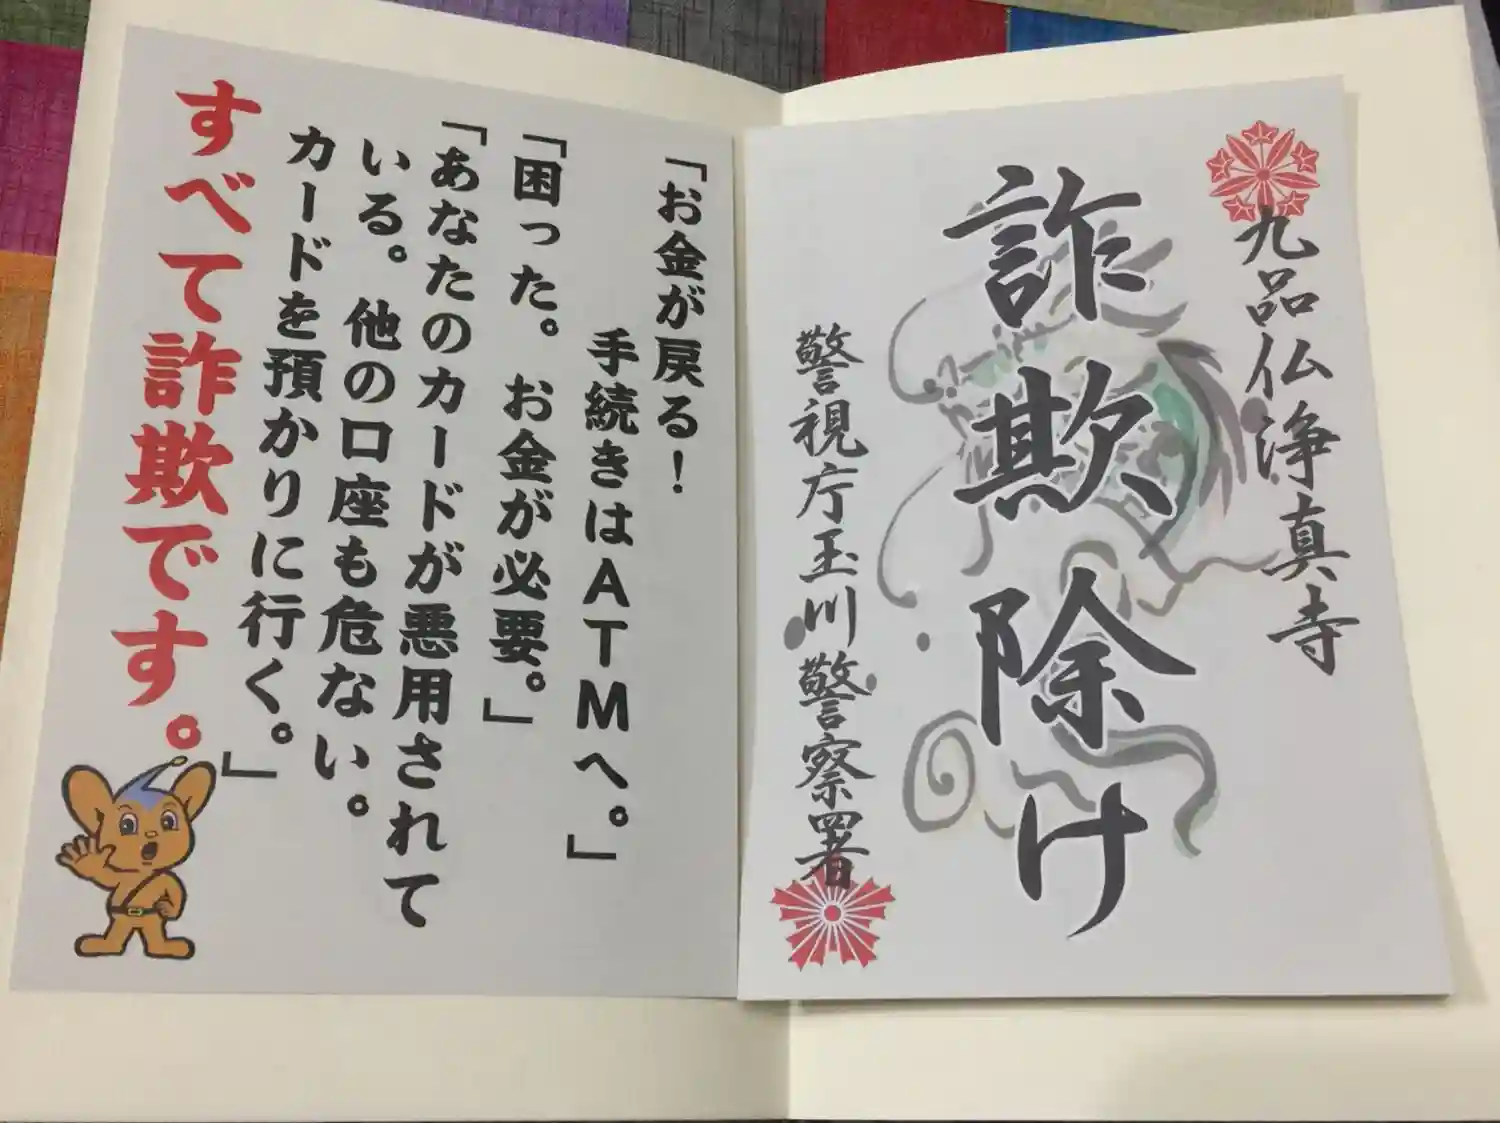 九品仏浄真寺
詐欺除け
警視庁玉川警察署
「お金が戻る！
手続きはATMへ。」
「困った。お金が必要。」
「あなたのカードが悪用されて
いる。他の口座も危ない。
カードを預かりに行く。」
すべて詐欺です。